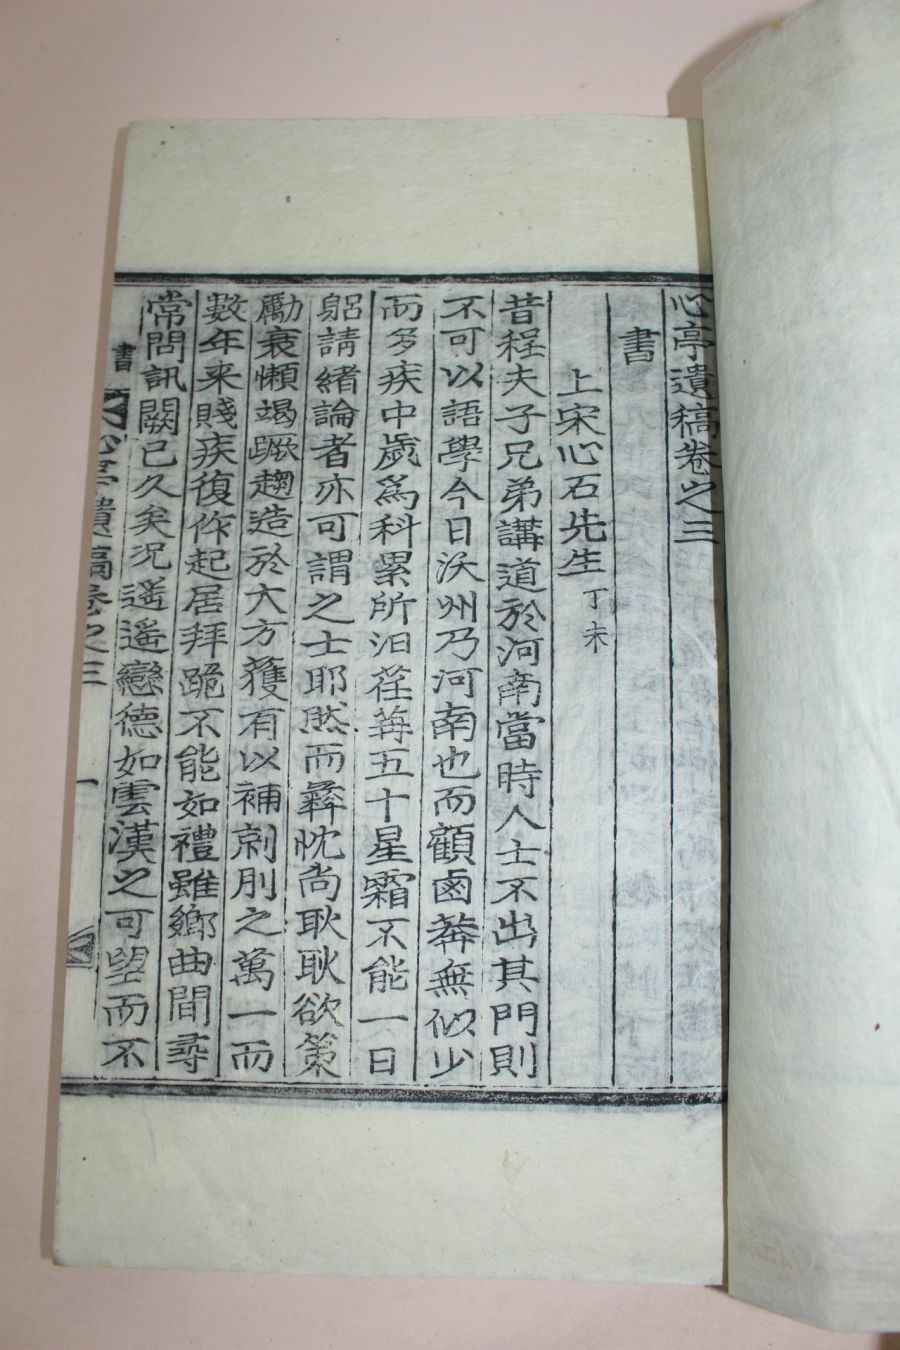 心亭遺稿卷之三
書
上宋心石先生 丁未
昔程夫子兄弟講道於河南當時人士不出其門則
不可以語學今日沃州乃河南也而顧鹵莽無似少
而多疾中歲爲科累所汩荏苒五十星霜不能一日
躬請緒論者亦可謂之士耶然而彛忱尚耿耿欲策
勵衰懶竭蹶趨造於大方獲有以補剠刖之萬一而
数年来賤疾復作起居拜跪不能如禮雖鄕曲間尋
常問訊闕已久矣况遥遥戀德如雲漢之可望而不
書 心亭遺稿卷之三 一